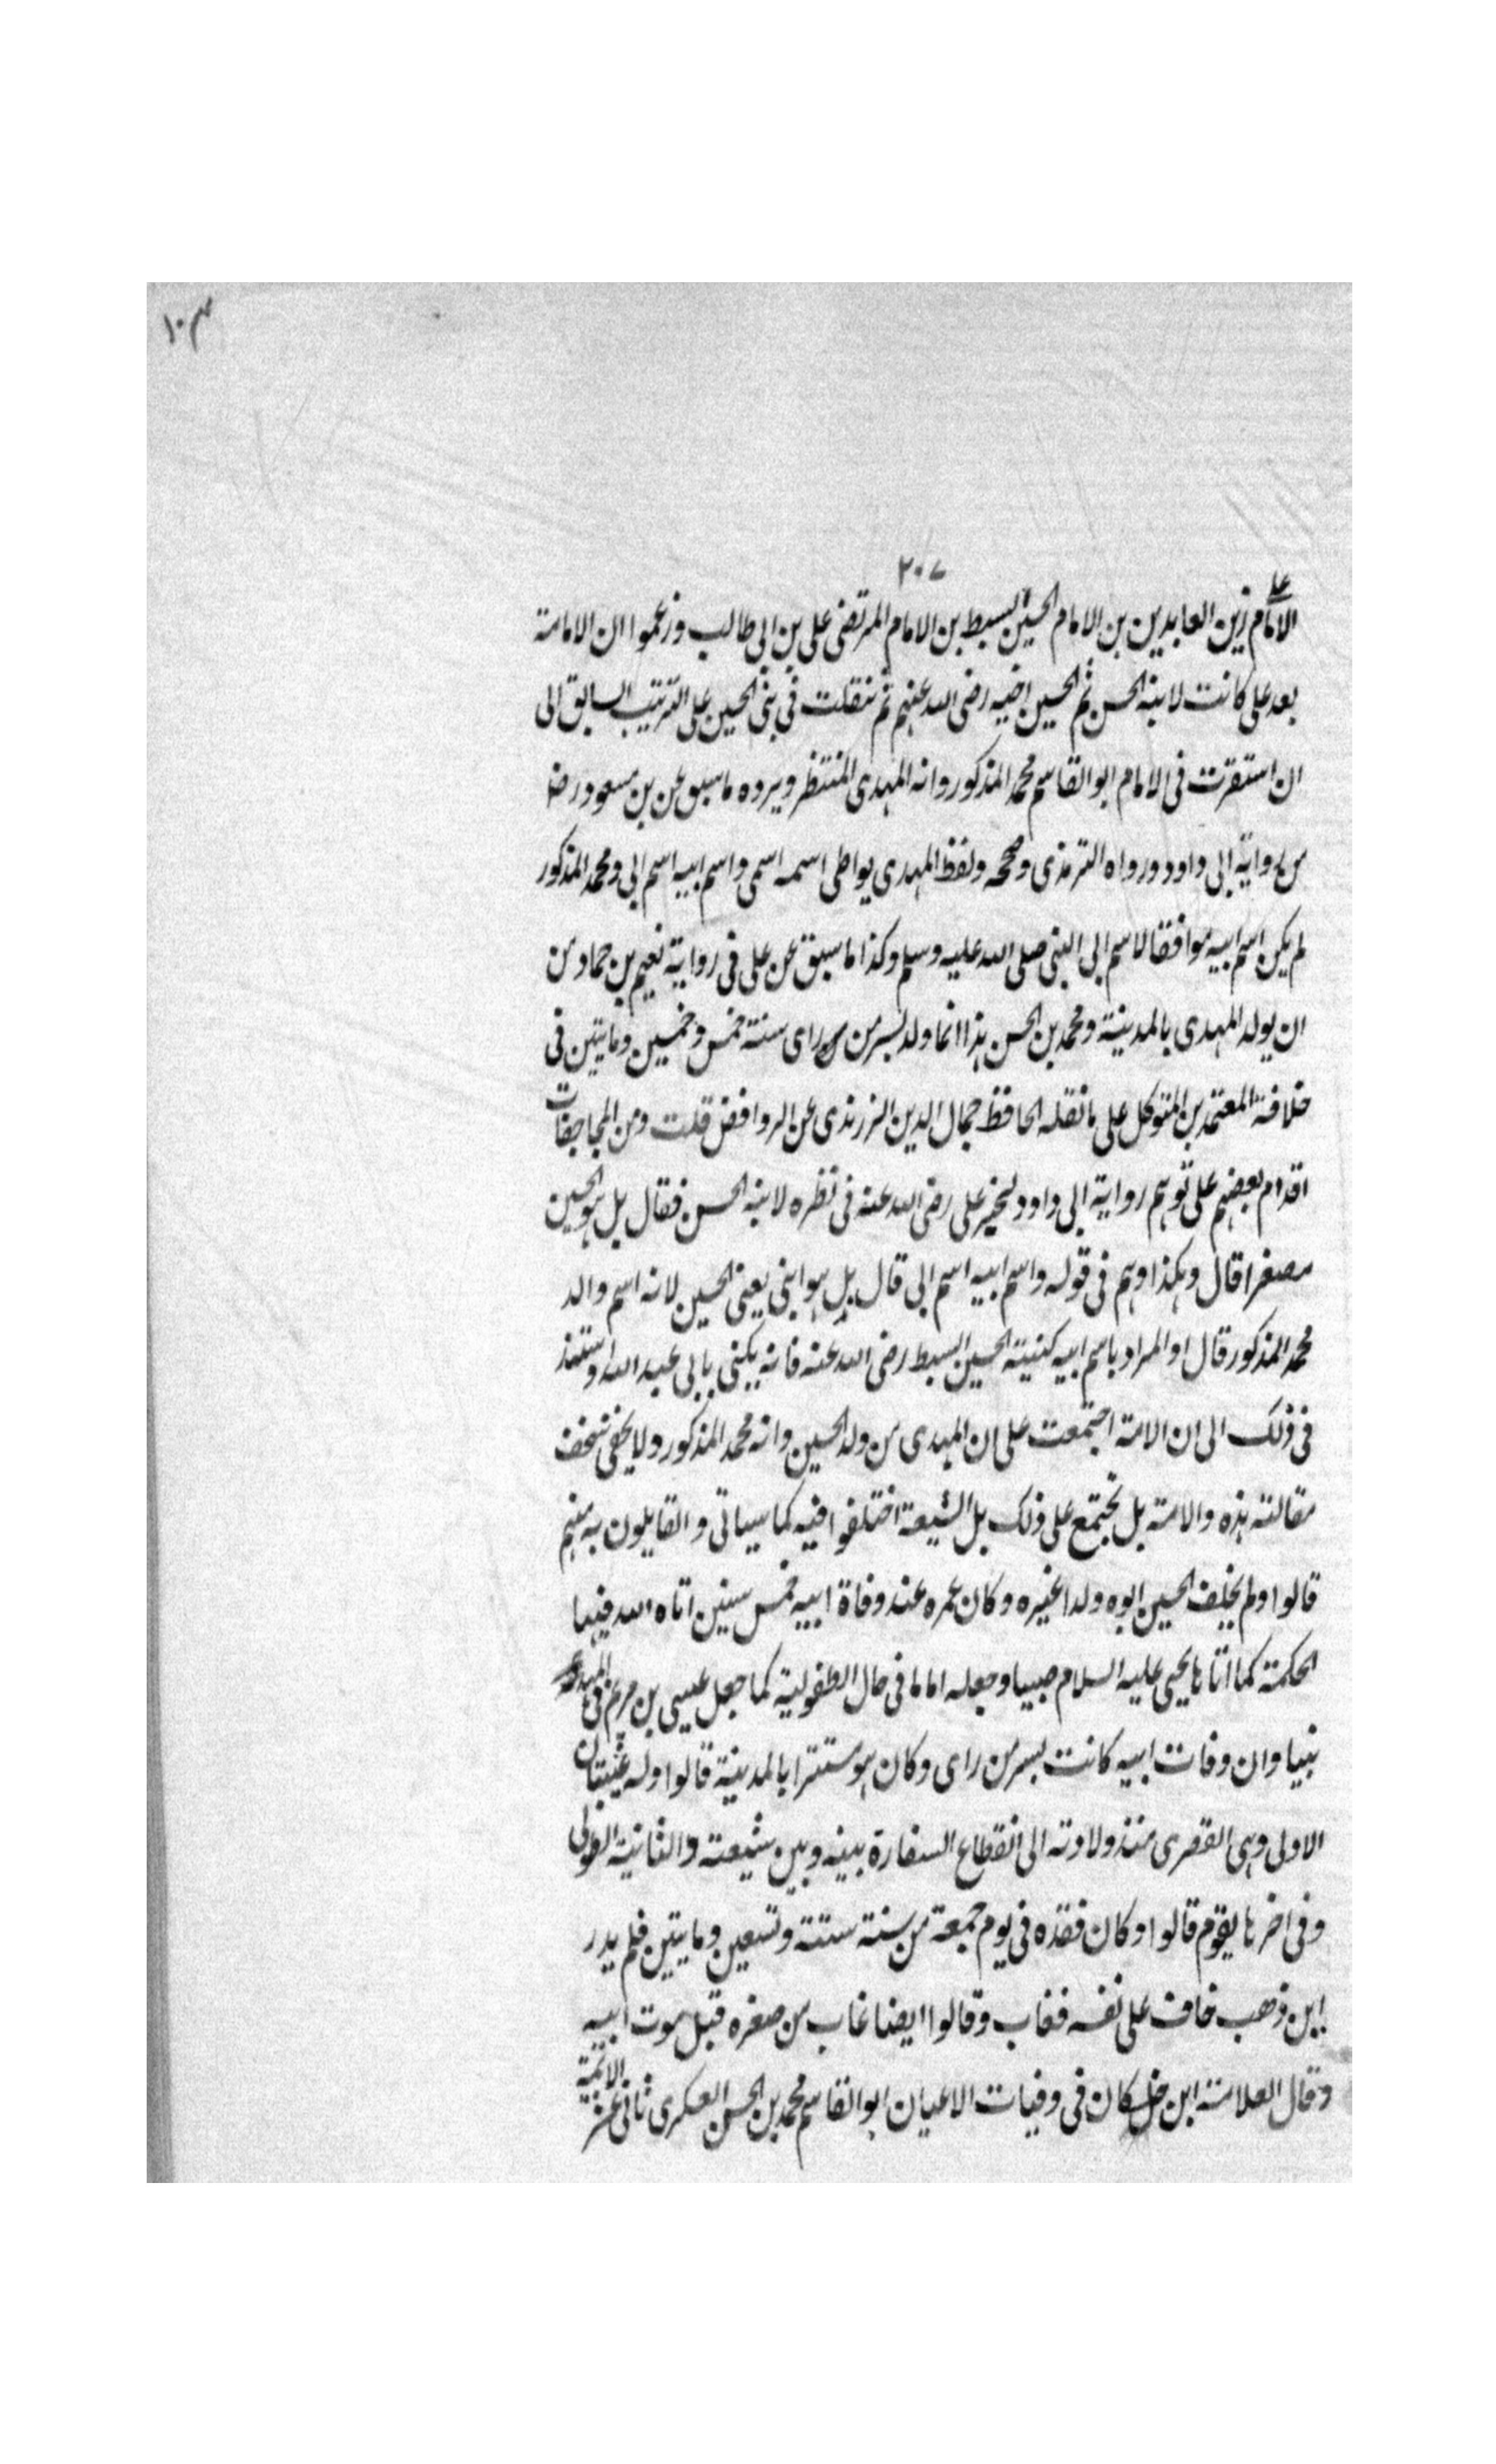 ١٠٣
٢٠٧
على
الامام زين العابدين بن الامام الحسين السبط بن الامام المرتضى على بن ابى طالب وزعموا ان الامامة
بعد على كانت لابنه الحسن ثم الحسين اخيه رضى الله عنهم ثم تنقلت فى بنى الحسين على الترتيب السابق الى
ان استقرت فى الامام ابو القاسم محمد المذكور وانه المهدى المنتظر ويرده ما سبق عن بن مسعود رضا
من رواية ابى داود ورواه الترمذى وصححه ولفظ المهدى يواطى اسمه اسمى واسم ابيه اسم ابى ومحمد المذكور
لم يكن اسم ابيه موافقا لاسم ابى النبى صلى الله عليه وسلم وكذا ما سبق عن على فى رواية نعيم بن حماد من
ان يولد المهدى بالمدينة ومحمد بن الحسن هذا انما ولد بسر من راى سنة خمس وخمسين ومايتين فى
خلافة المعتمد بن المتوكل على ما نقله الحافظ جمال الدين الزرندى عن الروافض قلت ومن
اقدام بعضهم على توهم رواية ابى داود لخبر على رضى الله عنه فى نظره لابنه الحسن فقال بل هو الحسين
مصغرا قال وهكذا وهم فى قوله واسم ابيه اسم ابى قال بل هو ابنى يعنى الحسين لانه اسم والد
محمد المذكور قال او المراد باسم ابيه كنيته الحسين السبط رضى الله عنه فانه يكنى بابى عبد الله
فى ذلك الى ان الامة اجتمعت على ان المهدى من ولد الحسين وانه محمد المذكور ولا يخفى
مقالته هذه والامة بل تجتمع على ذلك بل الشيعة اختلفوا فيه كما سياتى والقايلون به منهم
قالوا ولم يخلف الحسين ابوه ولدا غيره وكان عمره عند وفاة ابيه خمس سنين اتاه الله فيها
الحكمة كما اتاها يحيى عليه السلام صبيا وجعله اماما فى حال الطفولية كما جعل عيسى بن مريم فى المهد
نبيا وان وفات ابيه كانت بسر من راى وكان هو مستترا بالمدينة قالوا وله غيبتان
الاولى وهى القصرى منذ ولادته الى انقطاع السفارة بينه وبين شيعته والثانية الطولى
وفى اخرها يقوم قالوا وكان فقده فى يوم جمعة من سنة ستة وتسعين ومايتين فلم يدر
اين ذهب خاف على نفسه فغاب وقالوا ايضا غاب من صغره قبل موت ابيه
وقال العلامة ابن خلكان فى وفيات الاعيان ابو القاسم محمد بن الحسن العسكرى ثانى عشر الائمة